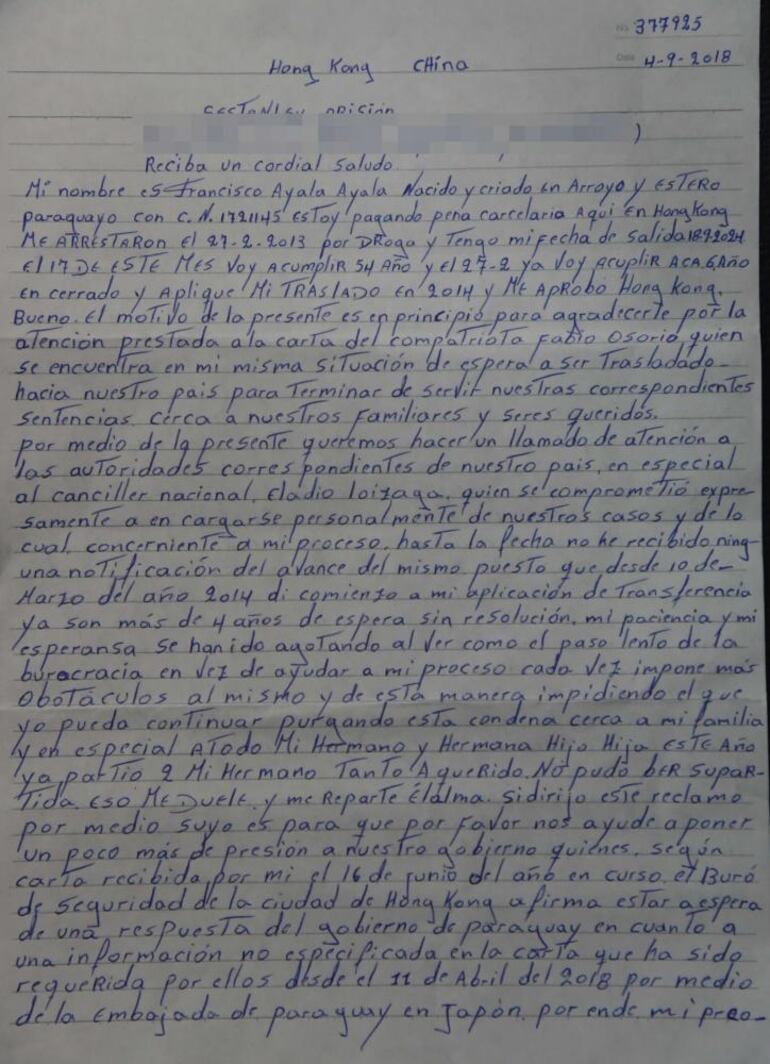 No 377925
Date 4-9-2018
Hong Kong CHina
)
Reciba un cordial saludo.
Mi nombre es Francisco Ayala Ayala Nacido y criado en Arroyo y ESTERO
paraguayo con C.N. 1721145 ESTOY pagando pena carcelaria Aqui En HongKong
ME ARRESTARON El 27-2-2013 por DRoga y Tengo mi fecha de salida
El 17 DE ESTE MES VOY ACUMPLIR 54 AÑO y El 27-2 ya Voy ACUPLIR ACA 6 AÑO
en cerrado y Aplique Mi TRASLADO En 2014 y ME APROBÓ Hong Kong.
Bueno. El motivo de la presente es en principio para agradecerte por la
atención prestada a la carta del compatriota Fabio Osorio, quien
se encuentra en mi misma situación de espera a ser Trasladado
hacia nuestro pais para Terminar de servir nuestras correspondientes
sentencias cerca a nuestros familiares y seres queridos.
por medio de la presente queremos hacer un llamado de atención a
las autoridades correspondientes de nuestro pais, en especial
al canciller nacional, Eladio loizaga, quien se comprometió expre-
samente a en cargarse personalmente de nuestros casos y de lo
cual, concerniente a mi proceso, hasta la fecha no he recibido ning-
una notificación del avance del mismo puesto que desde 10 de-
Marzo del año 2014 di comienzo a mi aplicación de Transferencia
ya son más de 4 años de espera sin resolución. mi paciencia y mi
esperansa se han ido agotando al ver como el paso lento de la
buracracia en vez de ayudar a mi proceso cada vez impone más
obstáculos al mismo y de esta manera impidiendo el que
yo pueda continuar purgando esta condena cerca a mi familia
y en especial ATodo Mi Hermano y Hermana Hijo Hija ESTE AÑO
ya partio 2 Mi Hermano TanTo A queRido. No pudo bER SupaR-
Tida. Eso ME DuelE y me Reparte Élalma. Si dirijo este reclamo
por medio suyo es para que por favor nos ayude a poner
un poco más de presión a nuestro gobierno quienes, según
carta recibida por mi el 16 de junio del año en curso, el Buró
de seguridad de la ciudad de Hong Kong afirma estar a espera
de una respuesta del gobierno de paraguay en cuanto a
una información no especificada en la carta que ha sido
requeRida por ellos desde el 11 de Abril del 2018 por medio
de la Embajada de paraguay en Japón, por ende mi preo-